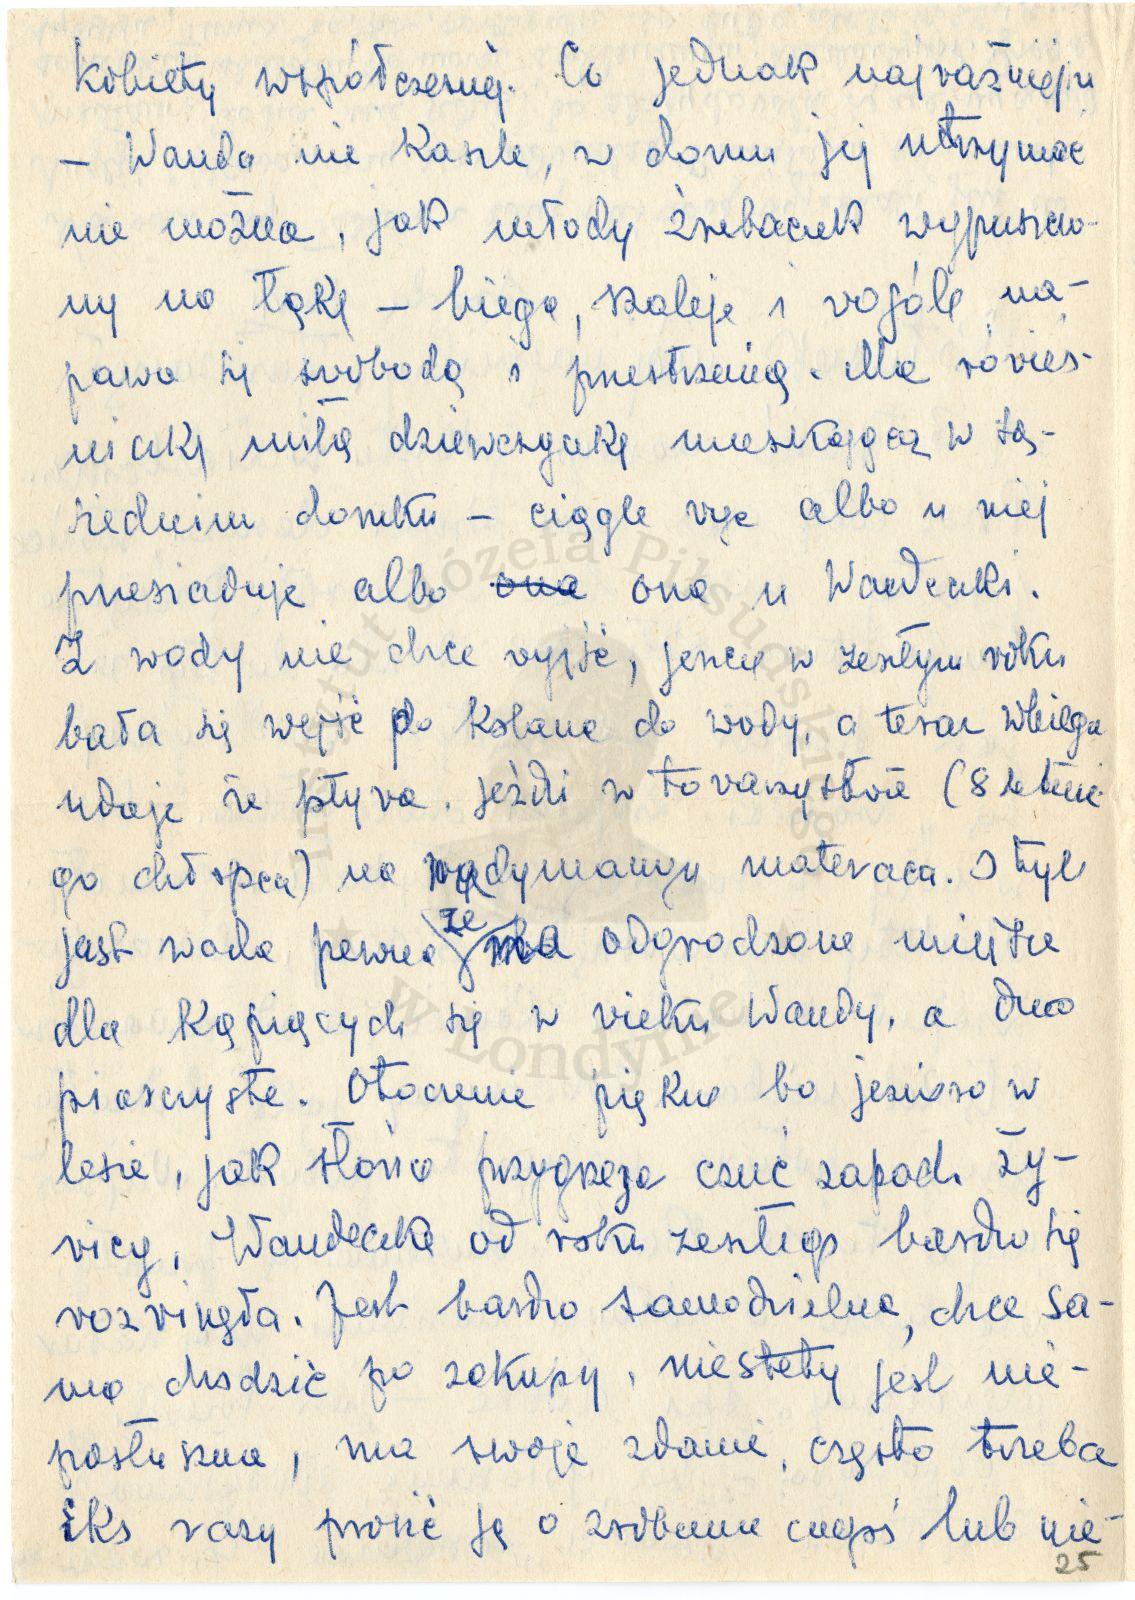 Kobietą współczesną. Co jednak najważniejsze
– Wanda nie kaszle, w domu jej utrzymać
nie można, jak młody źrebaczek wypuszczo-
ny na łąkę – biega, szaleje i wogóle na-
pawa się swobodą i przestrzenią. Ma rówieś-
niczkę miłą dziewczynkę mieszkającą w są-
siednim domku – ciągle więc albo u niej
przesiaduje albo ona ona u Wandeczki.
Z wody nie chce wyjść, jeszcze w zeszłym roku
bała się wejść do kolana do wody, a teraz wbiega
udaje że pływa, jeździ w towarzystwie (8 letnie
go chłopca) na nadymanym materacu. O tyle
jest woda pewna że ma odgrodzone miejsce
dla kąpiących się w wieku Wandy, a dno
piaszczyste. Otoczenie piękne bo jezioro w
lesie, jak słońce przygrzeje czuć zapach ży-
wicy, Wandeczka od roku zeszłego bardzo się
rozwinęła. Jest bardzo samodzielna, chce sa-
ma chodzić po zakupy, niestety jest nie-
posłuszna, ma swoje zdanie, często trzeba
iks razy prosić ją o zrobienie czegoś lub nie-
25
Instytut Józefa Piłsudskiego
w Londynie